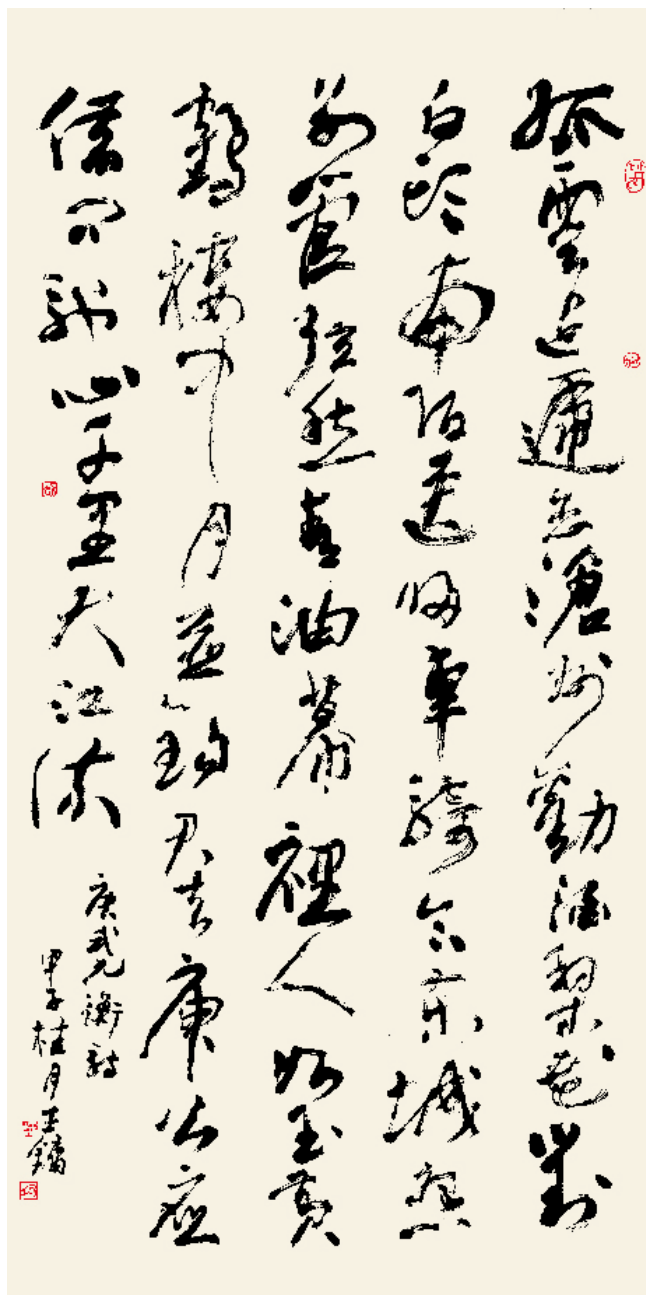 孤雲迢遞戀滄州勸酒梨花對
白頭南陌送歸車騎合東城怨
別管弦愁青油幕裡人如玉黃
鶴樓中月並鈎君去庾公應
馳心千里大江流
唐武元衡詩
甲子桂月王鏞